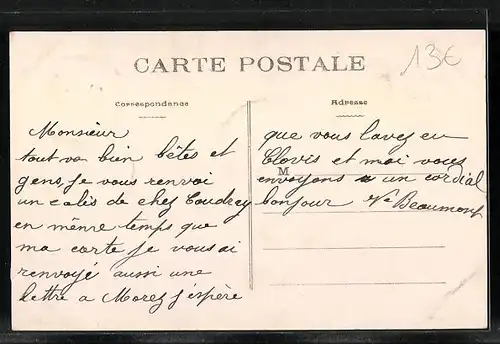 13€
CARTE POSTALE
Correspondance
Adresse
Monsieur
tout va bien bêtes et
gens, je vous renvoi
un colis de chez Coudrey
en même temps que
ma carte je vous ai
renvoyé aussi une
lettre a Morez j'espère
que vous l'avez eu
Clovis et moi vous
M
envoyons un cordial
bonjour Ve Beaumont